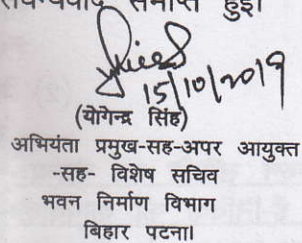 सधन्यवाद समाप्त हुई।
15/10/2019
(योगेन्द्र सिंह)
अभियंता प्रमुख-सह-अपर आयुक्त
-सह- विशेष सचिव
भवन निर्माण विभाग
बिहार पटना।